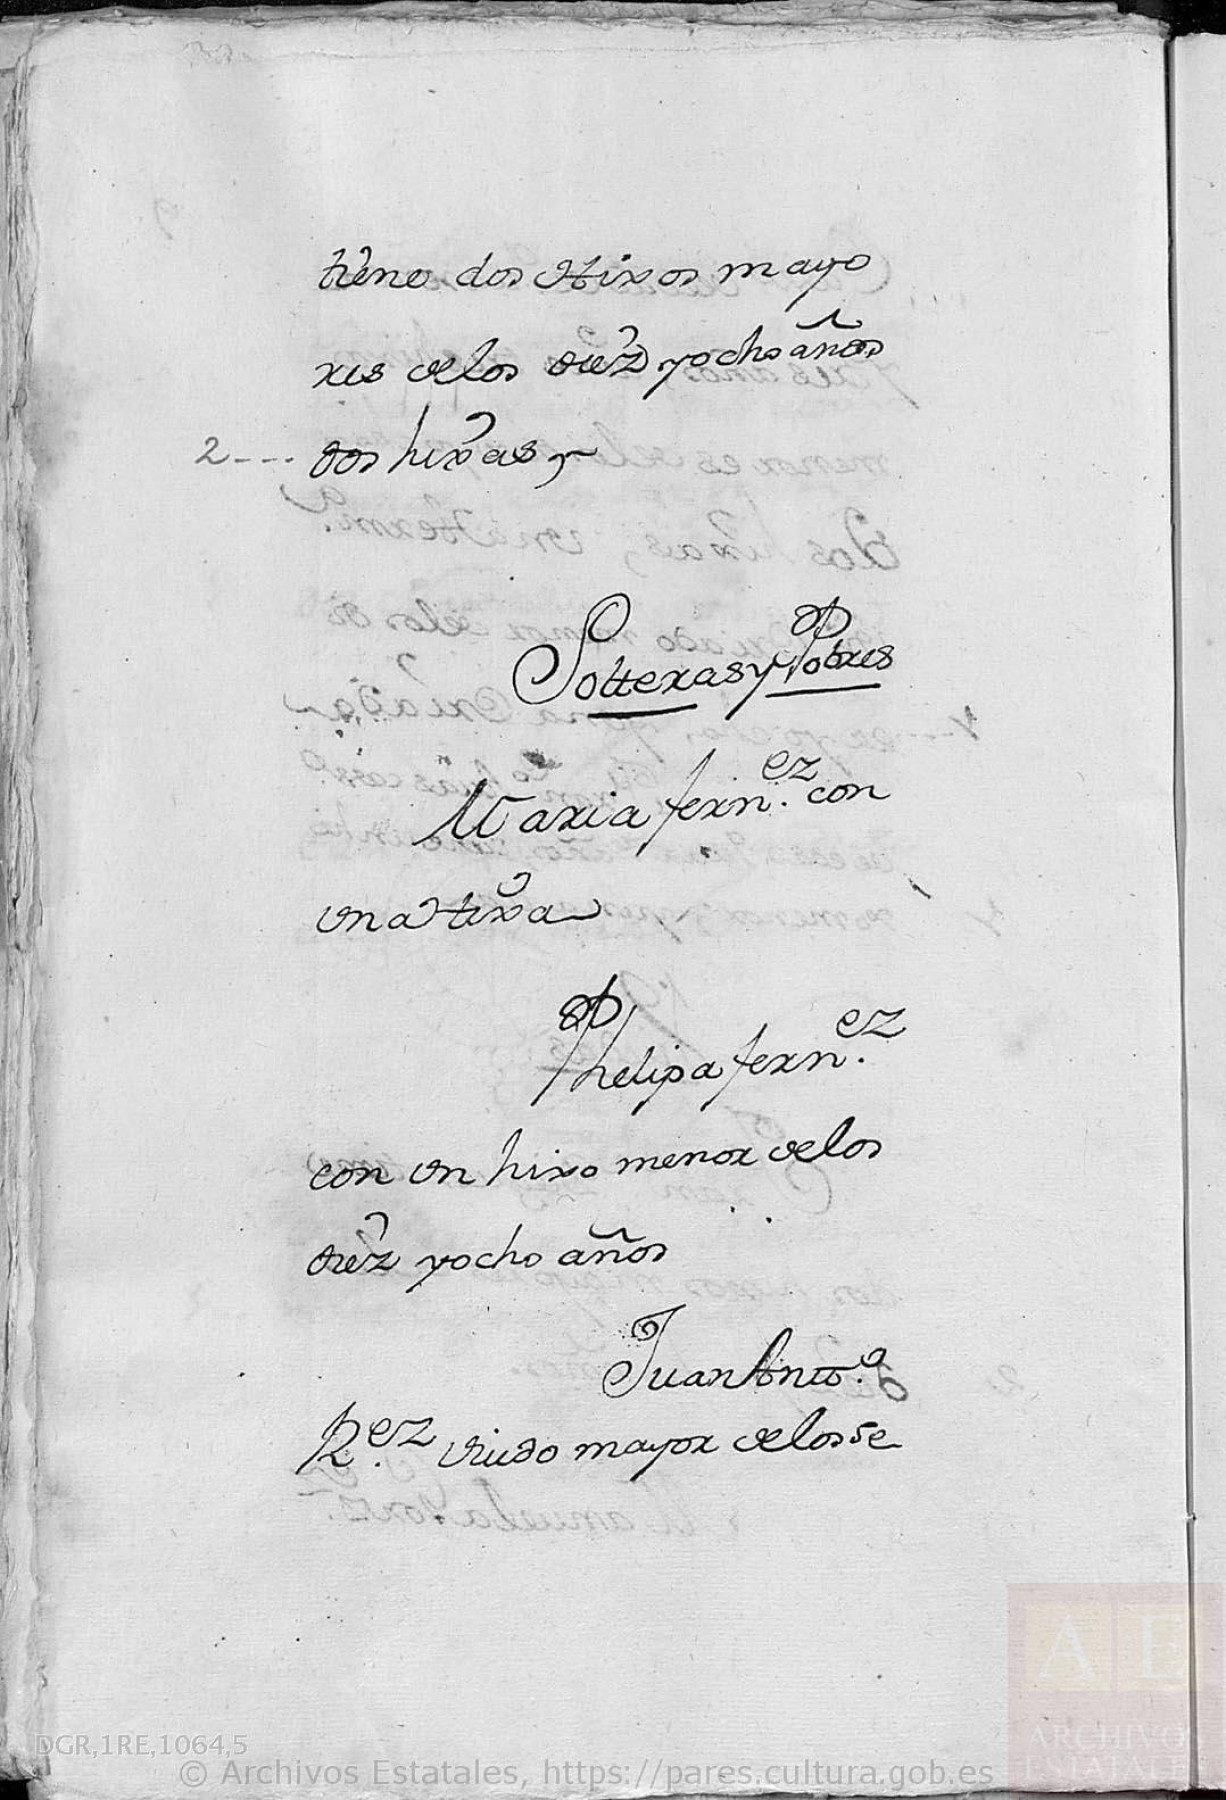 tiene dos Hixos mayo
res de los diez y ocho años
2--- dos hixas y
Solteras y Pobres
Maria fern.ez con
una Hixa
Phelipa fern.ez
con un hixo menor de los
diez y ocho años
Juan Anto.o
R.ez viudo mayor de los se
DGR,1RE,1064,5
© Archivos Estatales, https://pares.cultura.gob.es
AE
ARCHIVOS
ESTATALES